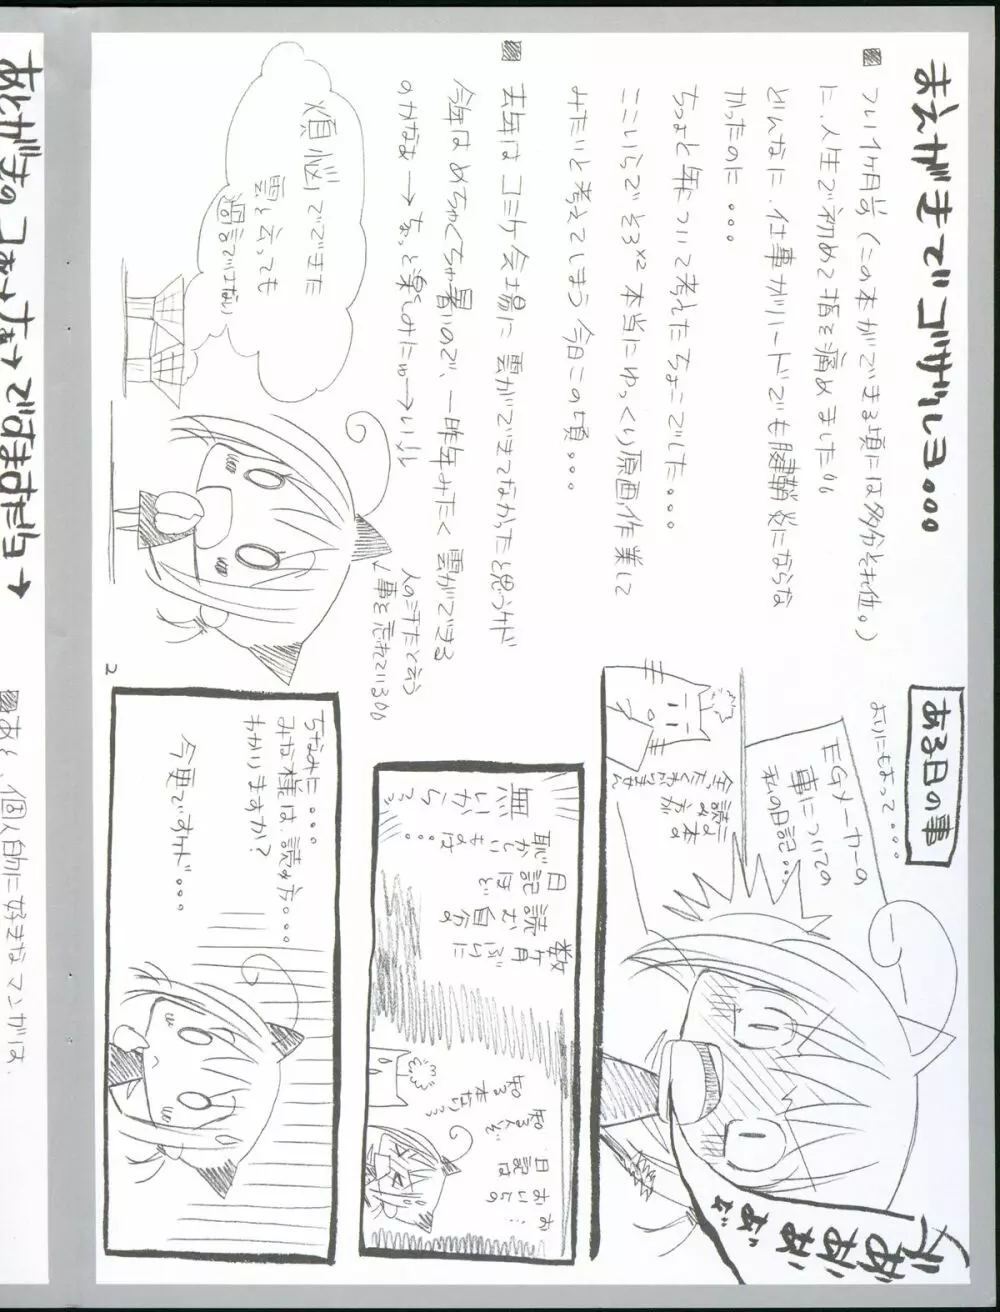 まえがきでゴザルヨ。。。。
■ つい1ヶ月前(この本ができる頃には多分それ位。)
に、人生で初めて指を痛めました。。
どんなに、仕事がハードでも腱鞘炎にならな
かったのに・・・
ちょと年ついて考えたちょこでした。。。。
ここいらでそろ×2 本当にゆっくり原画作業して
みたいと考えてしまう今日この頃。。。。
■ 去年はコミケ会場に雲ができてなかったと思うケド
今年はめちゃくちゃ暑いので、一昨年みたく雲ができる
のかなぁー→ちょっと楽しみにゅーい!!
人の汗だと云う
事を忘れている。。
煩悩でできた
雲と云っても
過言ではない
2
ある日の事
よりにもよって・・・
EGメーカーの
事についての
私の日記・・・
読み方が
全たくわかりません
ぎゃあああぁぁ
数ヶ月ぶりに
自分の
日記読むほど
恥かしいものは
無いからっっ
お・・
おいらの
日記は
ちなみに・・・・
みな様は、読み方・・・
わかりますか?
今更ですケド・・・
あとがきっつぅか、ちょーですまだヨ←
■あと、個人的に好きなマンガは、